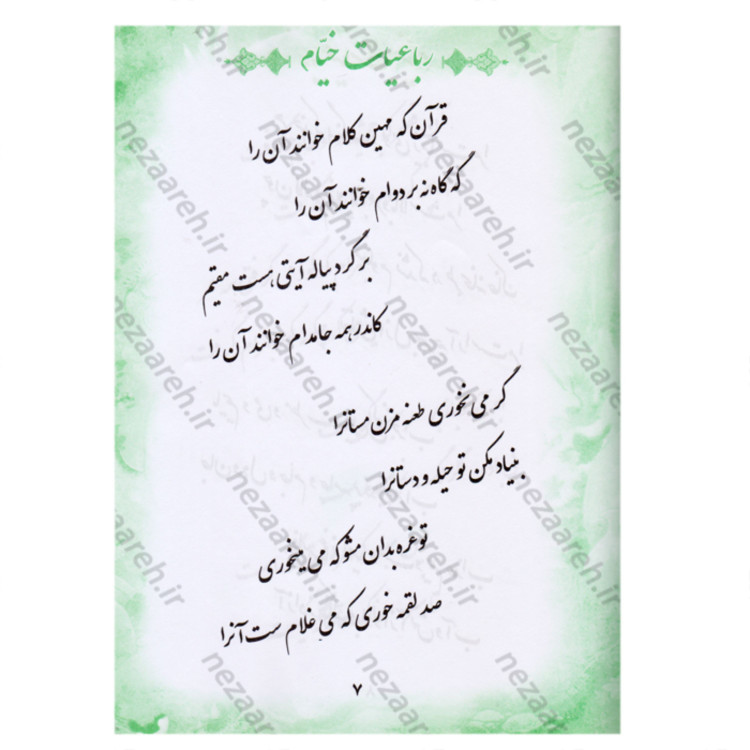 رباعیات خیّام
قرآن که مهین کلام خوانند آن را
گه گاه نه بر دوام خوانند آن را
بر گرد پیاله آیتی هست مقیم
کاندر همه جا مدام خوانند آن را
گر می نخوری طعنه مزن مستانرا
بنیاد مکن تو حیله و دستانرا
تو غره بدان مشو که می مینخوری
صد لقمه خوری که می غلام ست آنرا
۷
nezaareh.ir